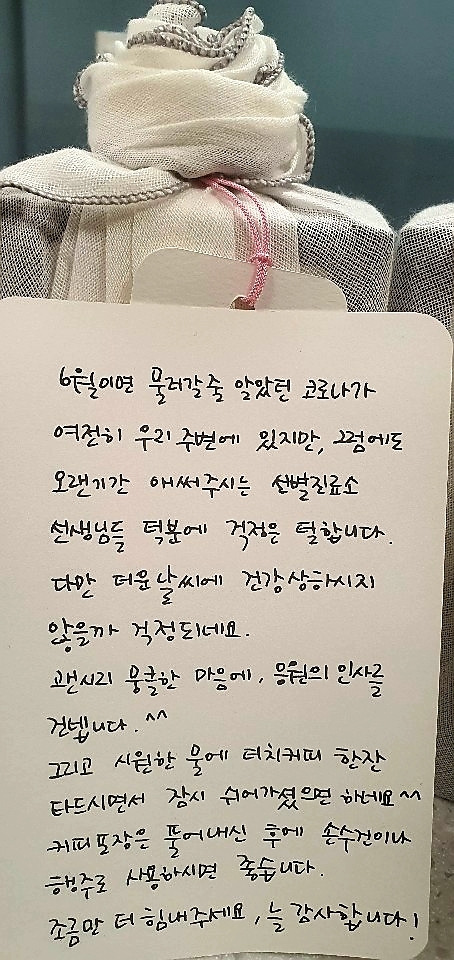 6월이면 물러갈 줄 알았던 코로나가
여전히 우리 주변에 있지만, 그럼에도
오랜기간 애써주시는 선별진료소
선생님들 덕분에 걱정은 덜합니다.
다만 더운 날씨에 건강 상하시지
않을까 걱정되네요.
괜시리 뭉클한 마음에, 응원의 인사를
건넵니다. ^^
그리고 시원한 물에 더치커피 한잔
타드시면서 잠시 쉬어가셨으면 하네요^^
커피포장은 풀어내신 후에 손수건이나
행주로 사용하시면 좋습니다.
조금만 더 힘내주세요, 늘 감사합니다!